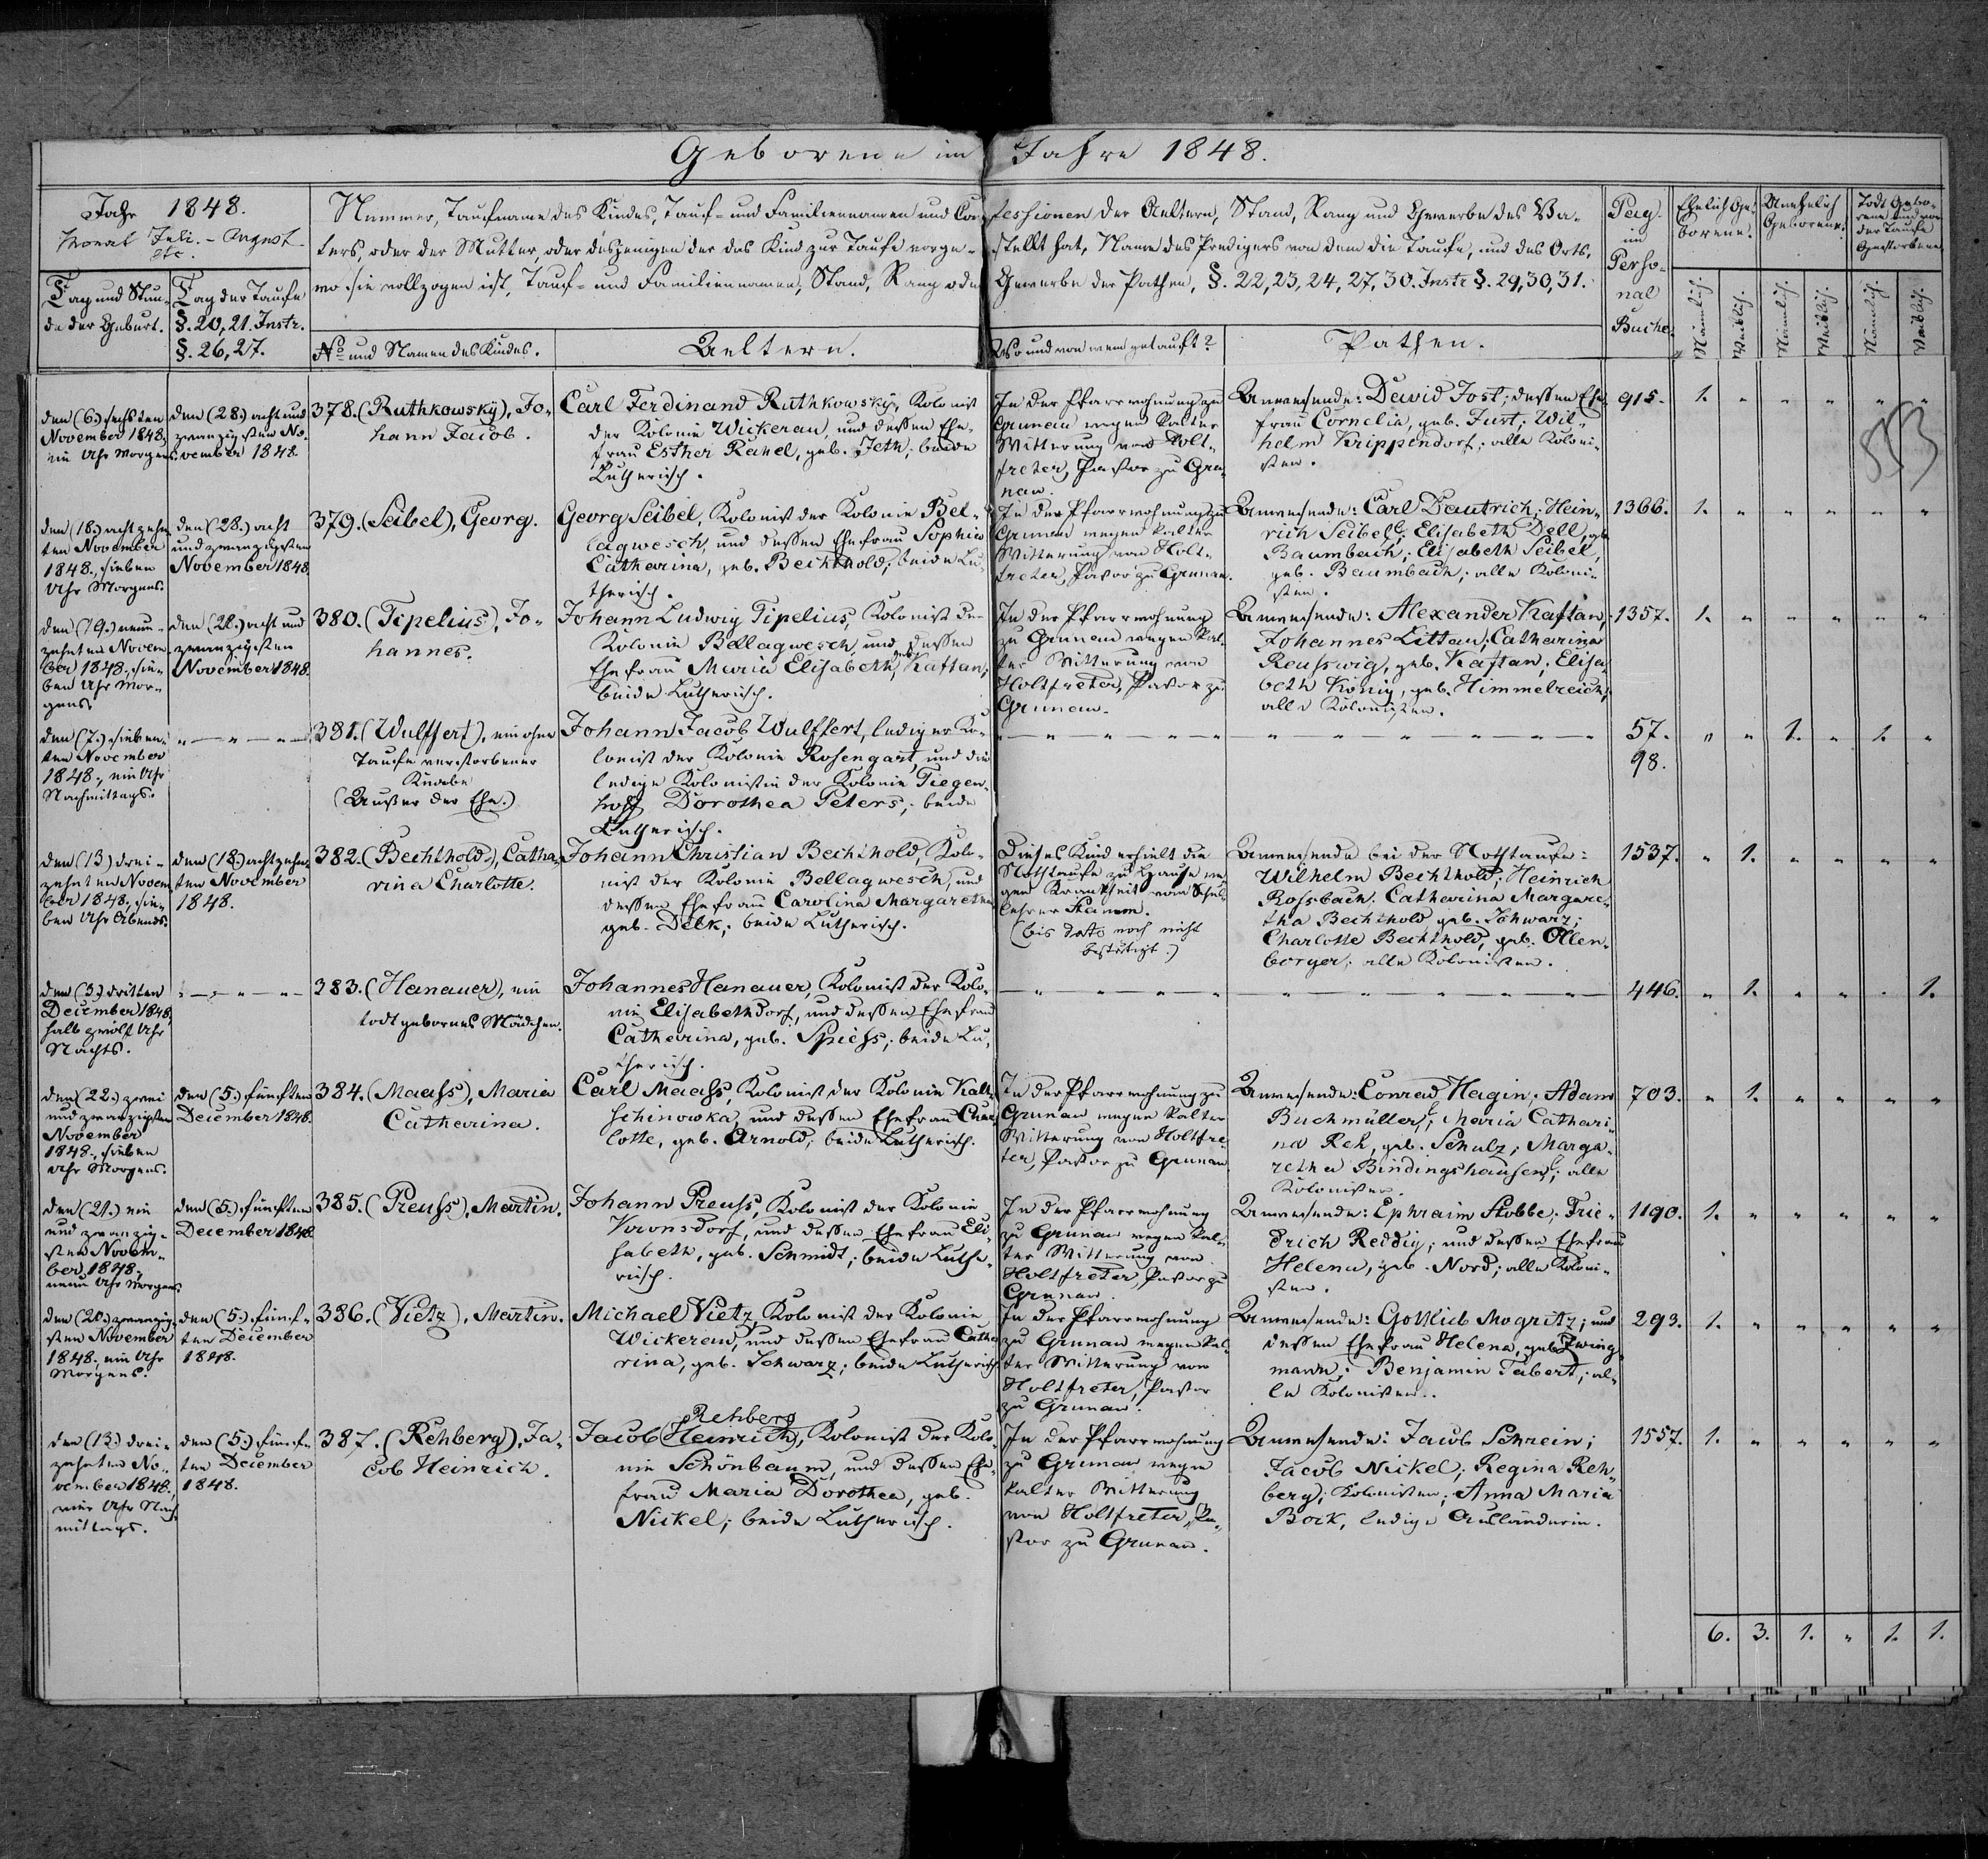 Geborene im Jahre 1848.
Jahr 1848.
Monat Juli. - August
etc.
Tag und Stun-
de der Geburt.
Tag der Taufe
§. 20, 21. Instr.
§. 26, 27.
Nummer, Taufname des Kindes, Tauf- und Familiennamen und Con-
fessionen der Aeltern, Stand, Rang und Gewerbe des Va-
ters, oder der Mutter, oder desjenigen der das Kind zur Taufe vorge-
stellt hat, Name des Predigers von dem die Taufe, und des Orts,
wo sie vollzogen ist, Tauf- und Familiennamen, Stand, Rang oder
Gewerbe der Pathen, §. 22, 23, 24, 27, 30. Instr §. 29, 30, 31.
No und Namen des Kindes.
Aeltern.
Wo und von wem getauft?
Pathen.
Pag.
im
Perso-
nal
Buche.
Ehelich Ge-
borene.
Unehelich
Geborene.
Todt Gebo-
rene und vor
der Taufe
Gestorbene.
Männlich.
Weiblich.
Männlich.
Weiblich.
Männlich.
Weiblich.
553
den (6.) sechsten
November 1848,
ein Uhr Morgens.
den (28.) acht und
zwanzigsten No-
vember 1848.
378. (Ruthkowsky), Jo-
hann Jacob.
Carl Ferdinand Ruthkowsky, Kolonist
der Kolonie Wickerau, und dessen Ehe-
frau Esther Rahel, geb. Jeth; beide
Lutherisch.
In der Pfarrwohnung zu
Grunau wegen kalter
Witterung von Holt-
freter, Pastor zu Gru-
nau.
Anwesende: David Jost; dessen Ehe-
frau Cornelia, geb. Just; Wil-
helm Krippendorf; alle Koloni-
sten.
915.
1. " " " " "
den (18.) achtzehn
ten November
1848., sieben
Uhr Morgens.
den (28.) acht
und zwanzigsten
November 1848.
379. (Seibel), Georg.
Georg Seibel, Kolonist der Kolonie Bel-
lagwesch, und dessen Ehefrau Sophia
Catharina, geb. Bechthold; beide Lu-
therisch.
In der Pfarrwohnung zu
Grunau wegen kalter
Witterung von Holt-
freter, Pastor zu Grunau.
Anwesende: Carl Dautrich; Hein-
rich Seibel; Elisabeth Dell, geb
Baumbach; Elisabeth Seibel,
geb. Baumbach; alle Koloni-
sten.
1366.
1. " " " " "
den (19.) neun-
zehnten Novem
ber 1848., sie-
ben Uhr Mor-
gens
den (28.) acht und
zwanzigsten
November 1848.
380. (Tipelius), Jo-
hannes.
Johann Ludwig Tipelius, Kolonist der
Kolonie Bellagwesch, und dessen
Ehefrau Maria Elisabeth, geb. Kaftan;
beide Lutherisch.
In der Pfarrwohnung
zu Grunau wegen kal-
ter Witterung von
Holtfreter, Pastor zu
Grunau.
Anwesende: Alexander Kaftan;
Johannes Littau; Catharina
Reuswig, geb. Kaftan; Elisa-
beth König, geb. Himmelreich;
alle Kolonisten.
1357.
1. " " " " "
den (7.) sieben-
ten November
1848., ein Uhr
Nachmittags.
" — " — " —
381. (Wulffert), ein ohne
Taufe verstorbener
Knabe
(Außer der Ehe.)
Johann Jacob Wulffert, lediger Ko-
lonist der Kolonie Rosengart, und die
ledige Kolonistin der Kolonie Tiegen-
hoff Dorothea Peters; beide
Lutherisch.
57.
98.
" " 1. " 1. "
den (13.) drei-
zehnten Novem
ber 1848., sie-
ben Uhr Abends.
den (18.) achtzehn-
ten November
1848.
382. (Bechthold), Catha-
rina Charlotte.
Johann Christian Bechthold, Kolo-
nist der Kolonie Bellagwesch, und
dessen Ehefrau Carolina Margaretha
geb. Delk; beide Lutherisch.
Dieses Kind erhielt die
Nothtaufe zu Hause we-
gen Krankheit vom Schul-
lehrer Kamm.
(bis dato noch nicht
bestätigt.)
Anwesende bei der Nothtaufe:
Wilhelm Bechthold; Heinrich
Rossbach; Catharina Margare-
tha Bechthold geb. Schwarz;
Charlotte Bechthold, geb. Ollen-
borger; alle Kolonisten.
1537.
" 1. " " " "
den (3.) dritten
December 1848,
halb zwölf Uhr
Nachts.
" — " — " —
383. (Hanauer), ein
todtgebornes Mädchen.
Johannes Hanauer, Kolonist der Kolo-
nie Elisabethdorf, und dessen Ehefrau
Catharina, geb. Spiess; beide Lu-
therisch.
446.
" 1. " " " 1.
den (22.) zwei
und zwanzigsten
November
1848., sieben
Uhr Morgens.
den (5.) fünften
December 1848.
384. (Maass), Maria
Catharina.
Carl Maass, Kolonist der Kolonie Kalt-
schinowka, und dessen Ehefrau Char-
lotte, geb. Arnold; beide Lutherisch.
In der Pfarrwohnung zu
Grunau wegen kalter
Witterung von Holtfre-
ter, Pastor zu Grunau
Anwesende: Conrad Hagin; Adam
Buchmüller; Maria Cathari-
na Reh, geb. Schulz; Marga-
retha Bindingshausen; alle
Kolonisten.
703.
" 1. " " " "
den (21.) ein
und zwanzig-
sten Novem-
ber 1848.,
neun Uhr Morgens
den (5.) fünften
December 1848.
385. (Preuss), Martin.
Johann Preuss, Kolonist der Kolonie
Kronsdorf, und dessen Ehefrau Eli-
sabeth, geb. Schmidt; beide Luthe-
risch.
In der Pfarrwohnung
zu Grunau wegen kal-
ter Witterung von
Holtfreter, Pastor zu
Grunau.
Anwesende: Ephraim Stobbe; Frie-
drich Reddig; und dessen Ehefrau
Helena, geb. Nord; alle Koloni-
sten.
1190.
1. " " " " "
den (20.) zwanzig-
sten November
1848., ein Uhr
Morgens.
den (5.) fünf-
ten December
1848.
386. (Vietz), Martin.
Michael Vietz, Kolonist der Kolonie
Wickerau, und dessen Ehefrau Catha-
rina, geb. Schwarz; beide Lutherisch
In der Pfarrwohnung
zu Grunau wegen kal-
ter Witterung von
Holtfreter, Pastor
zu Grunau.
Anwesende: Gottlieb Mogritz; und
dessen Ehefrau Helena, geb Zwing-
mann; Benjamin Tabert; al-
le Kolonisten.
293.
1. " " " " "
den (13.) drei-
zehnten No-
vember 1848.,
vier Uhr Nach-
mittags.
den (5.) fünf-
ten December
1848.
387. (Rehberg), Ja-
cob Heinrich.
Rehberg
Jacob (Heinrich), Kolonist der Kolo-
nie Schönbaum, und dessen Ehe-
frau Maria Dorothea, geb.
Nickel; beide Lutherisch.
In der Pfarrwohnung
zu Grunau wegen
kalter Witterung
von Holtfreter, Pa-
stor zu Grunau.
Anwesende: Jacob Schrein;
Jacob Nickel; Regina Reh-
berg; Kolonisten; Anna Maria
Bock, ledige Ausländerin.
1557.
1. " " " " "
6. 3. 1. " 1. 1.